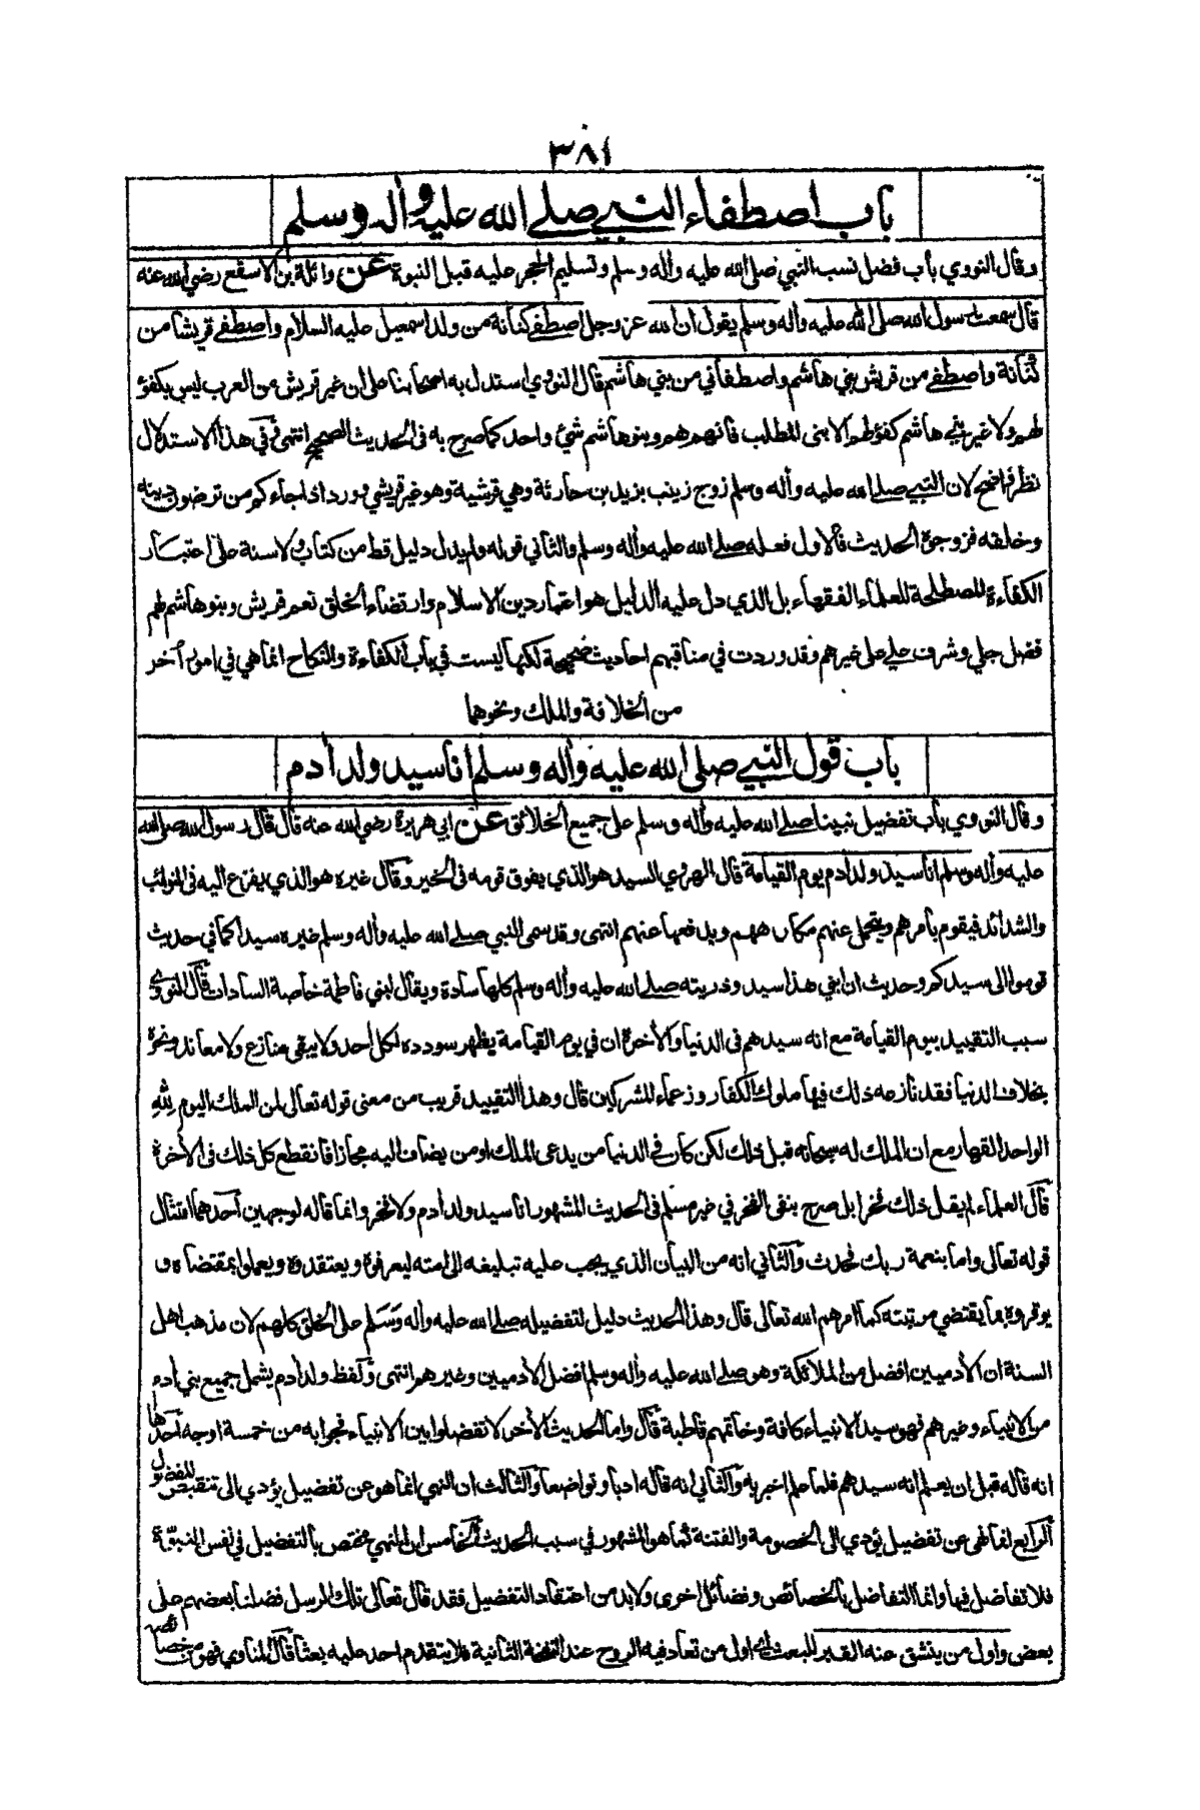 ٣٨١
باب اصطفاء النبي صلى الله عليه وأله وسلم
وقال النووي باب فضل نسب النبي صلى الله عليه وأله وسلم وتسليم الحجر عليه قبل النبوة عن واثلة بن الاسقع رضي الله عنه
قال سمعت رسول الله صلى الله عليه وأله وسلم يقول ان الله عز وجل اصطفى كنانة من ولد اسمعيل عليه السلام واصطفى قريشا من
كنانة واصطفى من قريش بني هاشم واصطفاني من بني هاشم قال النووي استدل به اصحابنا على ان غير قريش من العرب ليس بكفؤ
لهم ولا غير بني هاشم كفؤ لهم الا بنى المطلب فانهم هم وبنو هاشم شئ واحد كما صرح به فى الحديث الصحيح انتهى وفي هذا الاستدلال
نظر واضح لان النبي صلى الله عليه وأله وسلم زوج زينب بزيد بن حارثة وهي قرشية وهو غير قريشي وورد اذا جاءكم من ترضون دينه
وخلقه فزوجوه الحديث فالاول فعله صلى الله عليه وأله وسلم والثاني قوله ولم يدل دليل قط من كتاب ولا سنة على اعتبار
الكفاءة المصطلحة للعلماء الفقهاء بل الذي دل عليه الدليل هو اعتبار دين الاسلام وارتضاء الخلق نعم قريش وبنو هاشم لهم
فضل جلي وشرف علي على غيرهم وقد وردت في مناقبهم احاديث صحيحة لكنها ليست في باب الكفاءة والنكاح انما هي في امور أخر
من الخلافة والملك ونحوهما
باب قول النبي صلى الله عليه وأله وسلم انا سيد ولد أدم
وقال النووي باب تفضيل نبينا صلى الله عليه وأله وسلم على جميع الخلائق عن ابي هريرة رضي الله عنه قال قال رسول الله صلى الله
عليه وأله وسلم انا سيد ولد أدم يوم القيامة قال الهروي السيد هو الذي يفوق قومه فى الخير وقال غيره هو الذي يفزع اليه فى النوائب
والشدائد فيقوم بأمرهم ويتحمل عنهم مكارههم ويدفعها عنهم انتهى وقد سمى النبي صلى الله عليه وأله وسلم غيره سيدا كما في حديث
قوموا الى سيدكم وحديث ان ابني هذا سيد وذريته صلى الله عليه وأله وسلم كلها سادة ويقال لبني فاطمة خاصة السادات قال النووي
سبب التقييد بيوم القيامة مع انه سيدهم فى الدنيا والأخرة ان في يوم القيامة يظهر سودده لكل احد ولا يبقى منازع ولا معاند ونحوه
بخلاف الدنيا فقد نازعه ذلك فيها ملوك الكفار وزعماء المشركين قال وهذا التقييد قريب من معنى قوله تعالى لمن الملك اليوم لله
الواحد القهار مع ان الملك له سبحانه قبل ذلك لكن كان فى الدنيا من يدعى الملك او من يضاف اليه مجازا فانقطع كل ذلك فى الأخرة
قال العلماء لم يقل ذلك فخرا بل صرح بنفى الفخر في غير مسلم فى الحديث المشهور انا سيد ولد أدم ولا فخر وانما قاله لوجهين أحدهما امتثال
قوله تعالى واما بنعمة ربك فحدث والثاني انه من البيان الذي يجب عليه تبليغه الى امته ليعرفوه ويعتقدوه ويعملوا بمقتضاه و
يوقروه بما يقتضي مرتبته كما امرهم الله تعالى قال وهذا الحديث دليل لتفضيله صلى الله عليه وأله وسلم على الخلق كلهم لان مذهب اهل
السنة ان الأدميين افضل من الملائكة وهو صلى الله عليه وأله وسلم افضل الأدميين وغيرهم انتهى ولفظ ولد أدم يشمل جميع بني أدم
من الانبياء وغيرهم فهو سيد الانبياء كافة وخاتمهم قاطبة قال واما الحديث الأخر لا تفضلوا بين الانبياء فجوابه من خمسة اوجه أحدها
انه قاله قبل ان يعلم انه سيدهم فلما علم اخبر به والثاني انه قاله ادبا وتواضعا والثالث ان النهي انما هو عن تفضيل يؤدي الى تنقيص المفضول
الرابع انما نهى عن تفضيل يؤدي الى الخصومة والفتنة كما هو المشهور في سبب الحديث الخامس ان النهي مختص بالتفضيل في نفس النبوة
فلا تفاضل فيها وانما التفاضل بالخصائص وفضائل اخرى ولا بد من اعتقاد التفضيل فقد قال تعالى تلك الرسل فضلنا بعضهم على
بعض واول من ينشق عنه القبر للبعث اي اول من تعاد فيه الروح عند النفخة الثانية فلا يتقدم احد عليه بعثا قال المناوي فهو من خصائصه